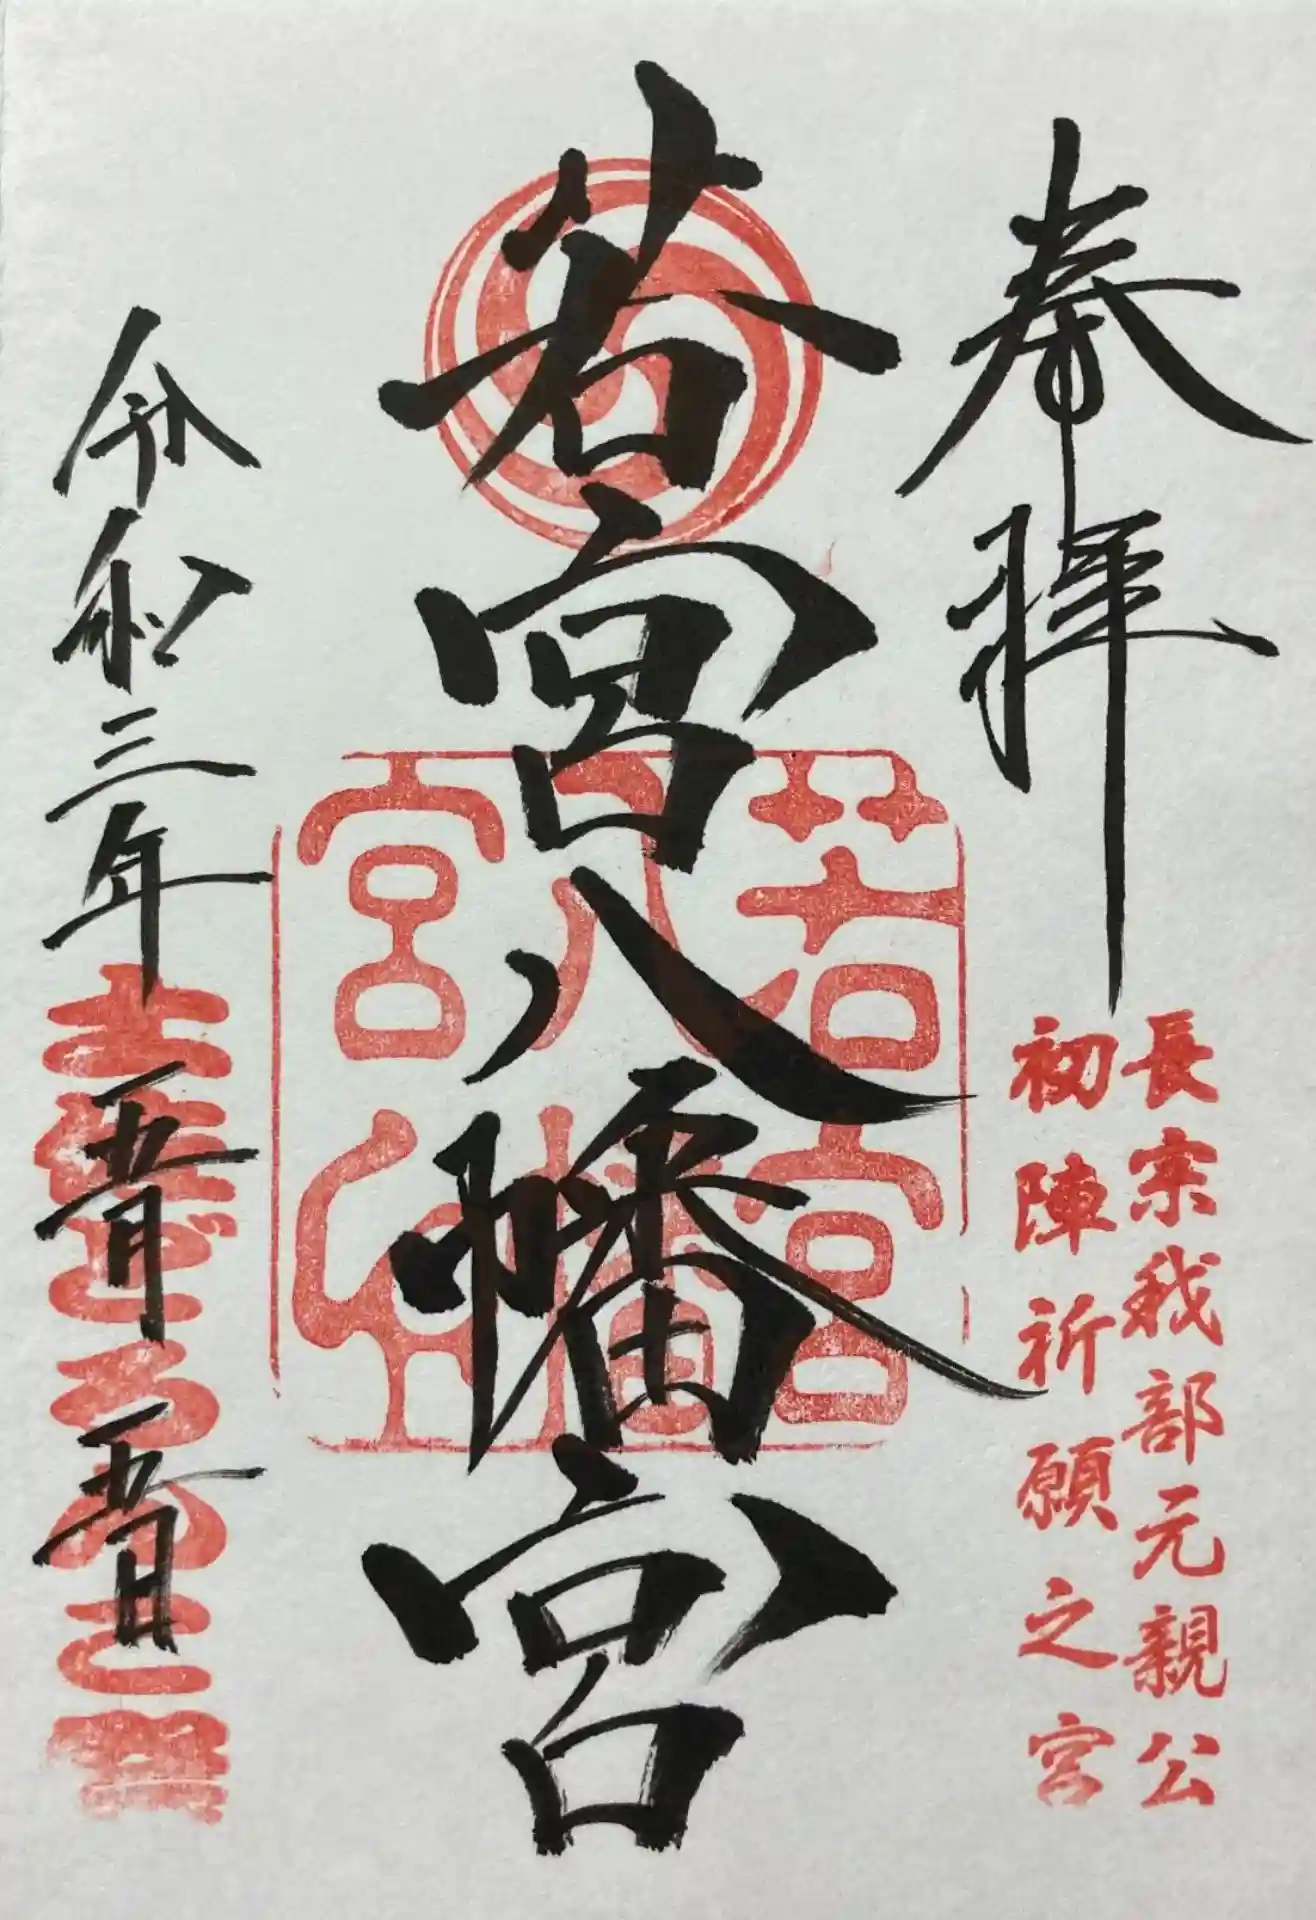 奉拝
長宗我部元親公
初陣祈願之宮
若宮八幡宮
若宮
八幡
宮印
令和三年五月五日
土佐どろんこ